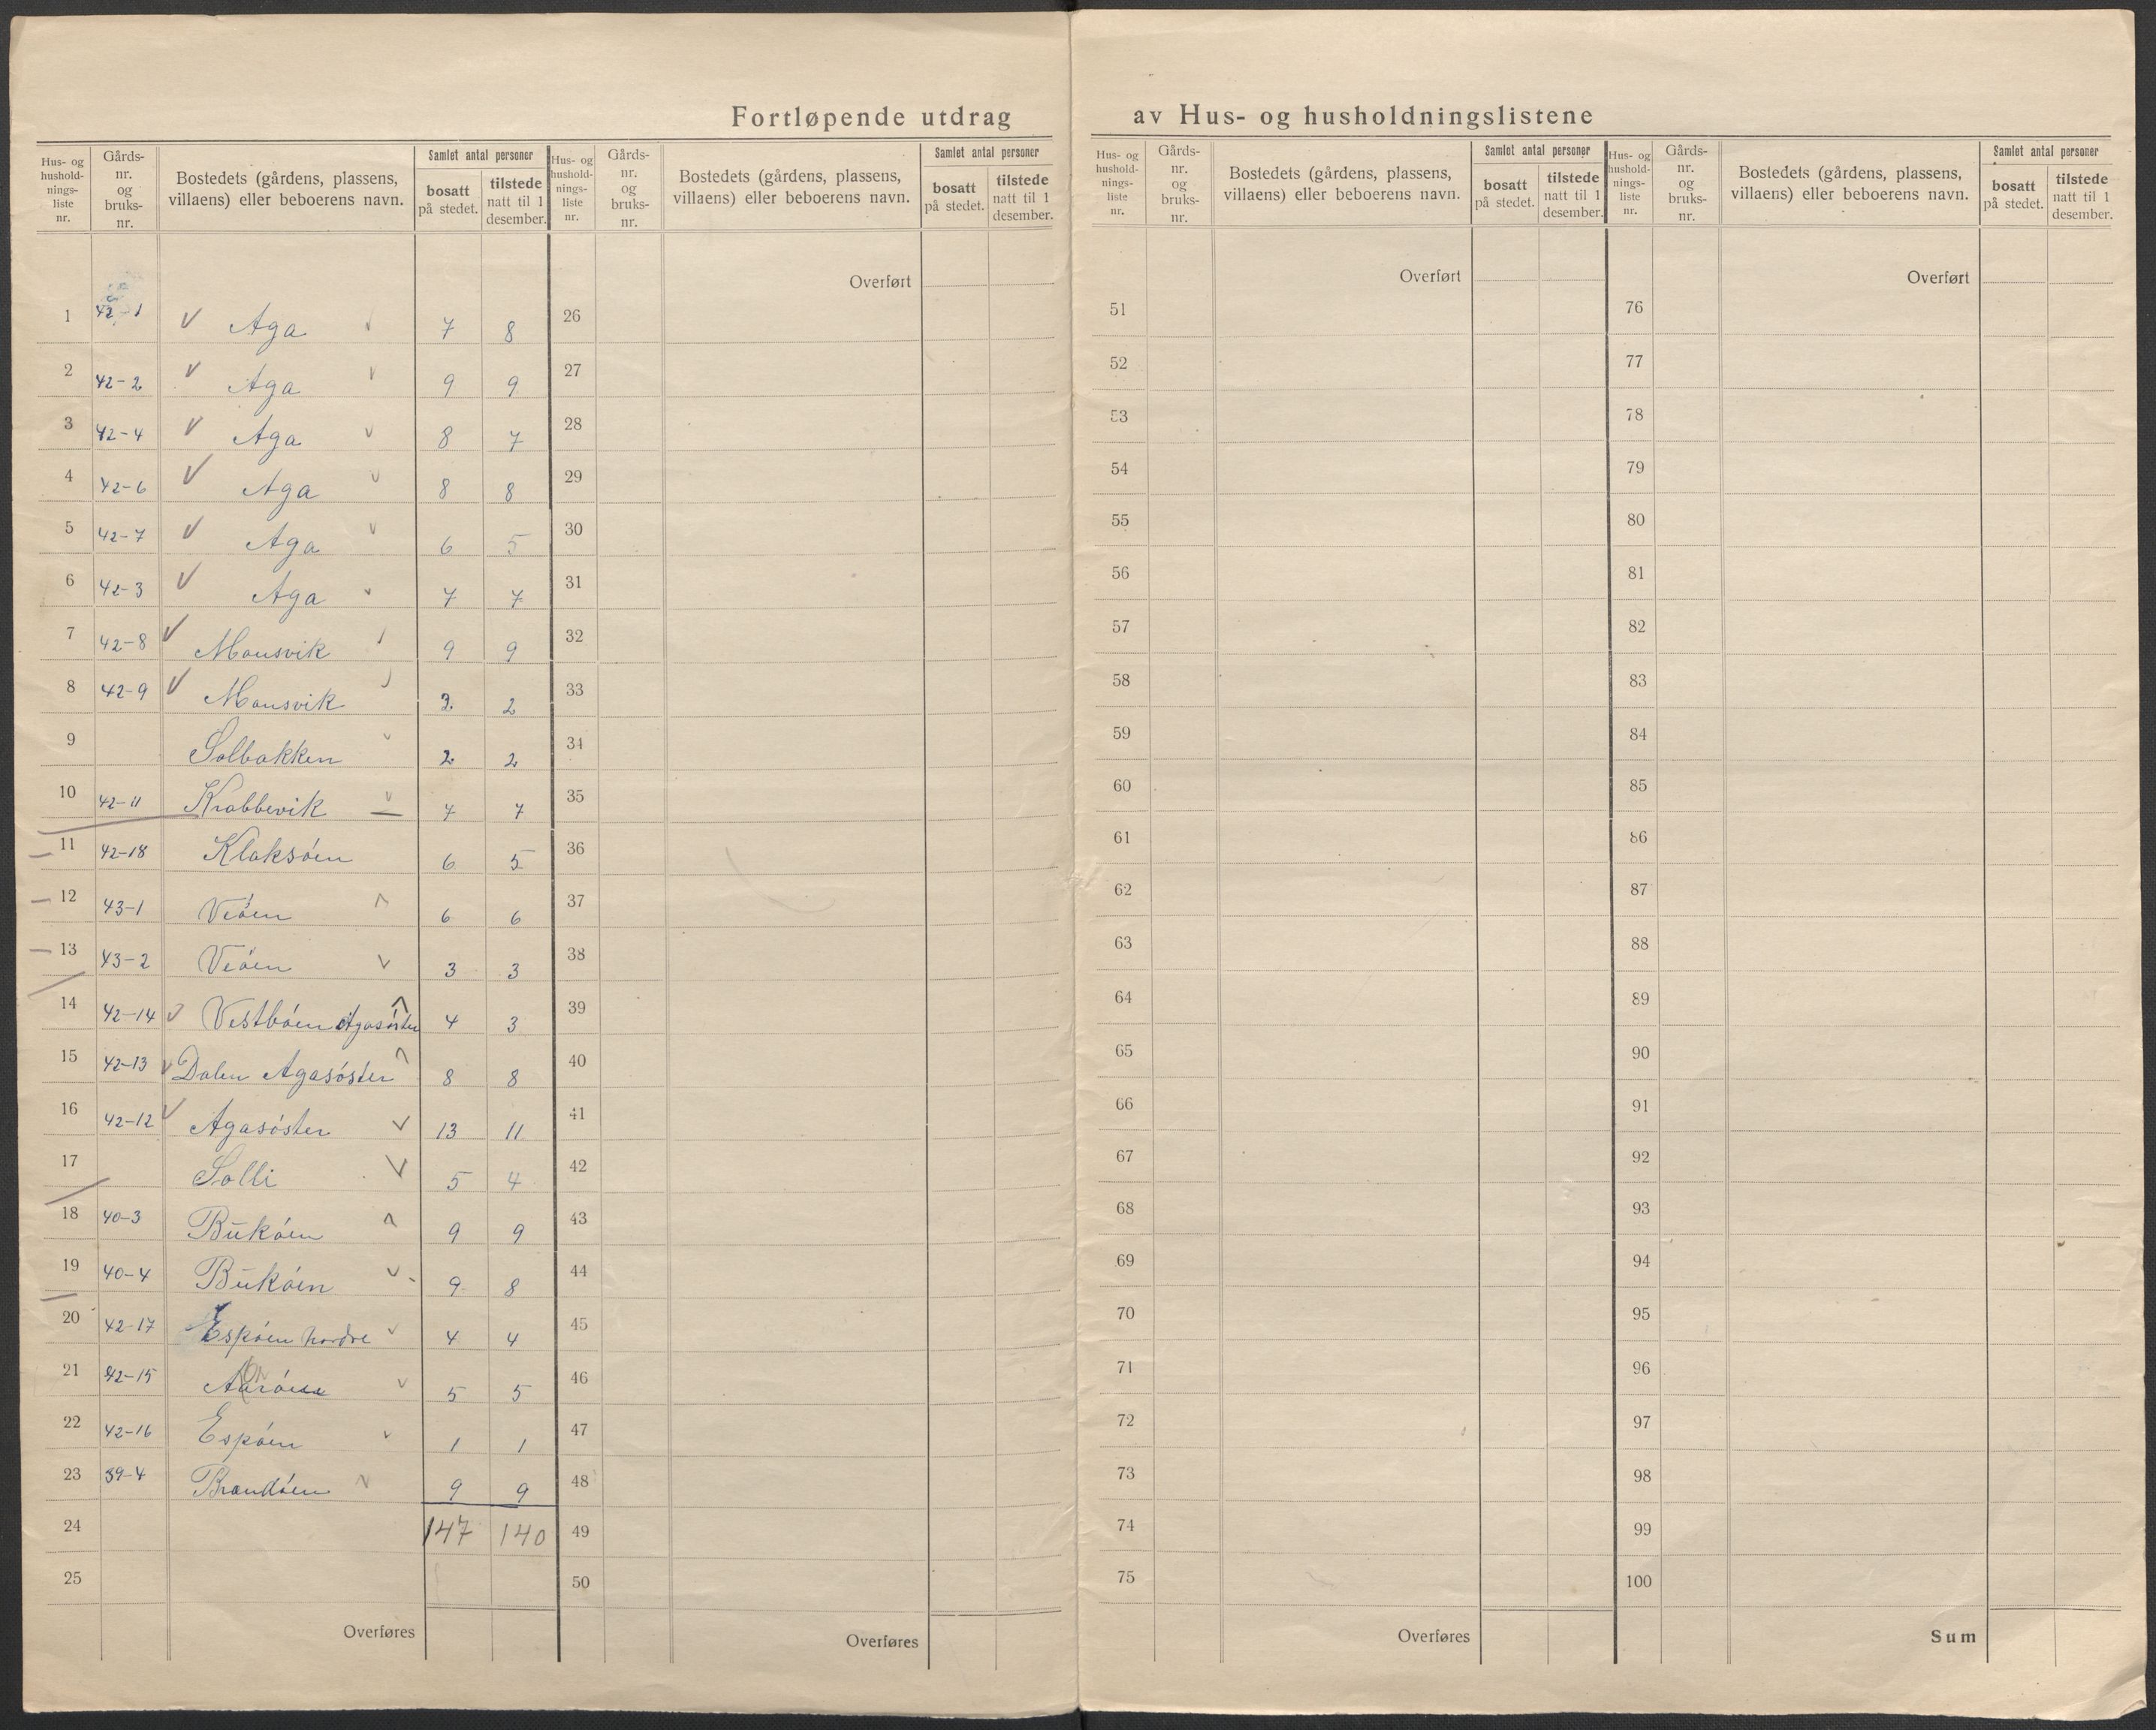 Fortløpende utdrag av Hus- og husholdningslistene
Hus- og hushold-nings-liste nr. Gårds-nr. og bruks-nr. Bostedets (gårdens, plassens, villaens) eller beboerens navn. Samlet antal personer bosatt på stedet. tilstede natt til 1 desember.
Hus- og hushold-nings-liste nr. Gårds-nr. og bruks-nr. Bostedets (gårdens, plassens, villaens) eller beboerens navn. Samlet antal personer bosatt på stedet. tilstede natt til 1 desember.
Hus- og hushold-nings-liste nr. Gårds-nr. og bruks-nr. Bostedets (gårdens, plassens, villaens) eller beboerens navn. Samlet antal personer bosatt på stedet. tilstede natt til 1 desember.
Hus- og hushold-nings-liste nr. Gårds-nr. og bruks-nr. Bostedets (gårdens, plassens, villaens) eller beboerens navn. Samlet antal personer bosatt på stedet. tilstede natt til 1 desember.
Overført Overført Overført
1 42-1 Aga 7 8 26 51 76
2 42-2 Aga 9 9 27 52 77
3 42-4 Aga 8 7 28 53 78
4 42-6 Aga 8 8 29 54 79
5 42-7 Aga 6 5 30 55 80
6 42-3 Aga 7 7 31 56 81
7 42-8 Monsvik 9 9 32 57 82
8 42-9 Monsvik 2 33 58 83
9 Solbakken 2 2 34 59 84
10 42-11 Krabbevik 7 7 35 60 85
11 42-18 Klaksóen 6 5 36 61 86
12 43-1 Veóen 6 6 37 62 87
13 43-2 Veóen 3 3 38 63 88
14 42-14 Vestbóen Agasóster 4 3 39 64 89
15 42-13 Dalen Agasóster 8 8 40 65 90
16 42-12 Agasóster 13 11 41 66 91
17 Solli 5 4 42 67 92
18 40-3 Bukóen 9 9 43 68 93
19 40-4 Bukóen 9 8 44 69 94
20 42-17 Espóen nordre 4 4 45 70 95
21 42-15 5 5 46 71 96
22 42-16 Espóen 1 1 47 72 97
23 39-4 Brandóen 9 9 48 73 98
24 147 140 49 74 99
25 50 75 100
Overføres Overføres Overføres Sum